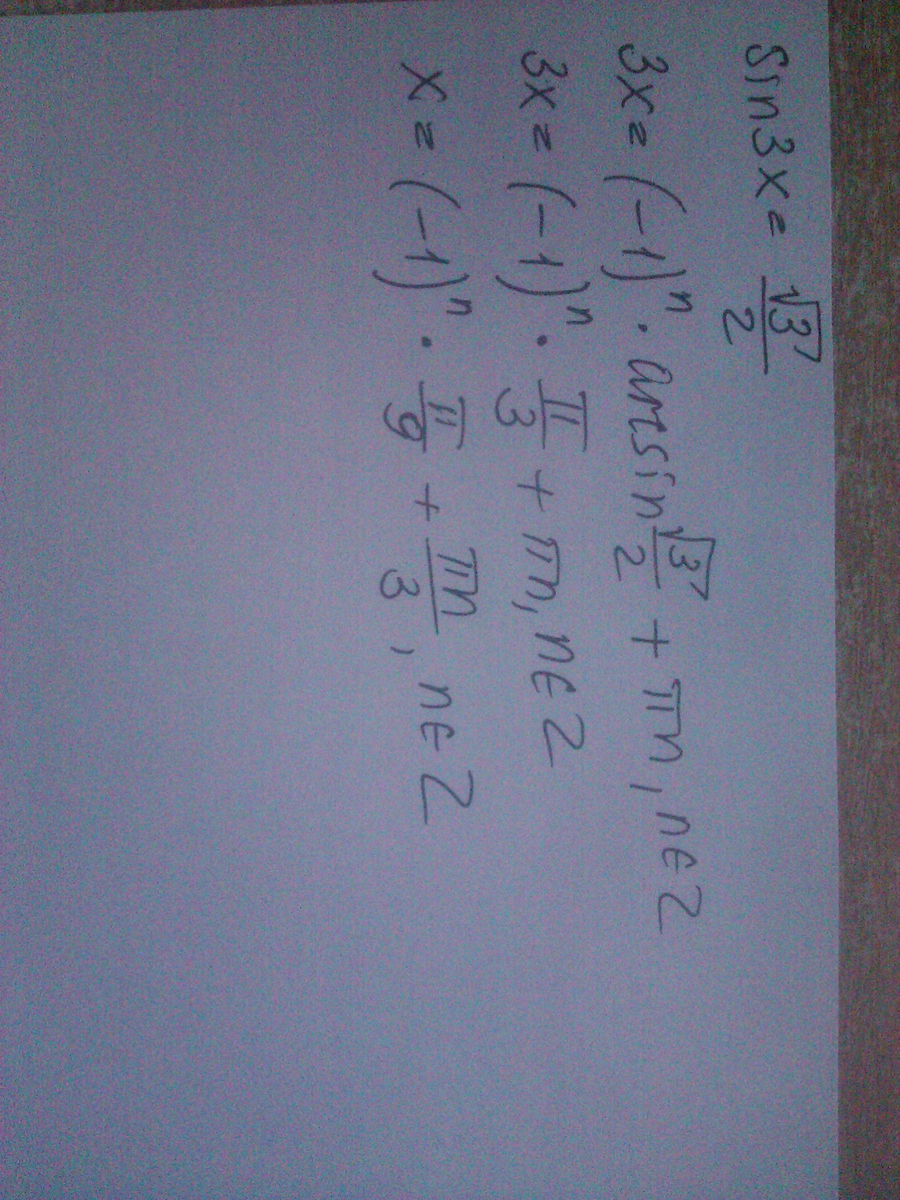 sin3x = √3/2
3x = (-1)ⁿ · arcsin √3/2 + πn, n∈Z
3x = (-1)ⁿ · π/3 + πn, n∈Z
x = (-1)ⁿ · π/9 + πn/3, n∈Z